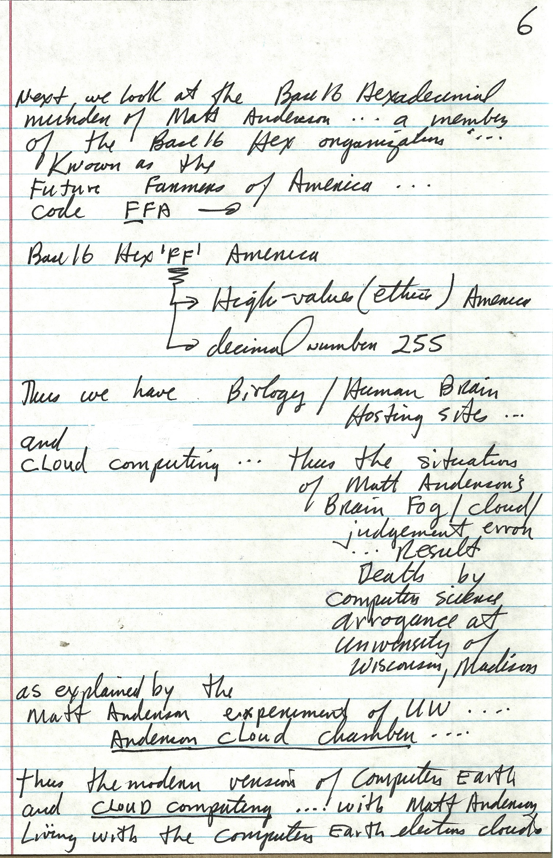 6
Next, we look at the Base 16 Hexadecimal
murder of Matt Anderson ... a member
of the Base 16 Hex organization ...
Known as the
Future Farmers of America ...
code FFA →
Base 16 Hex 'FF' America
→ High-values (ethics) America
→ decimal number 255
Thus we have Biology / Human Brain
Hosting sites ...
and
cloud computing ... thus the situation
of Matt Anderson's
Brain Fog / cloud /
judgement error
... Result
Death by
computer science
arrogance at
University of
Wisconsin, Madison
as explained by the
Matt Anderson experiment of UW ....
Anderson cloud chamber ....
thus the modern version of Computer Earth
and cloud computing ....! with Matt Anderson
Living with the Computer Earth electron clouds